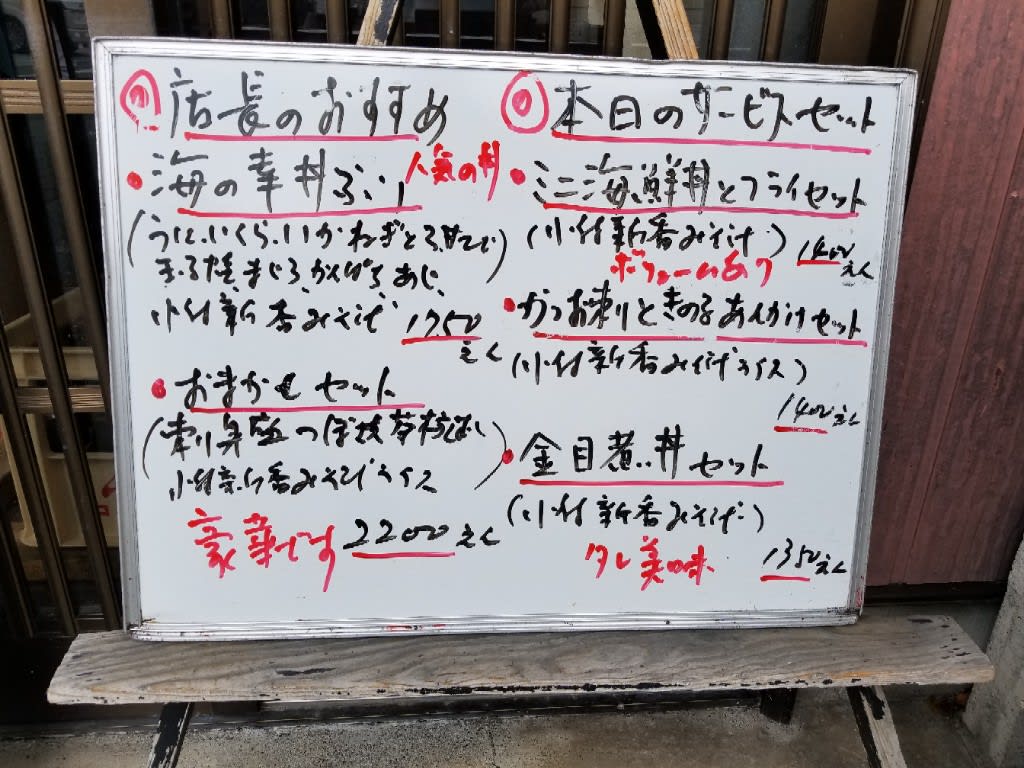 店長のおすすめ
海の幸丼ぶり 人気の丼
(うに、いくら、いか、ねぎとろ、ゆでだこ
まぐろ かんぱち あじ、
小付 新香 みそ汁) 1750えん
おまかせセット
(刺身 つぼ焼 茶わんむし
小付 新香 みそ汁 ライス)
豪華です 2200えん
本日のサービスセット
ミニ海鮮丼とフライセット
(小付 新香 みそ汁) 1400えん
ボリュームあり
かつお刺しときの子あんかけセット
(小付 新香 みそ汁 ライス)
1400えん
金目煮丼セット
(小付 新香 みそ汁)
タレ美味 1350えん